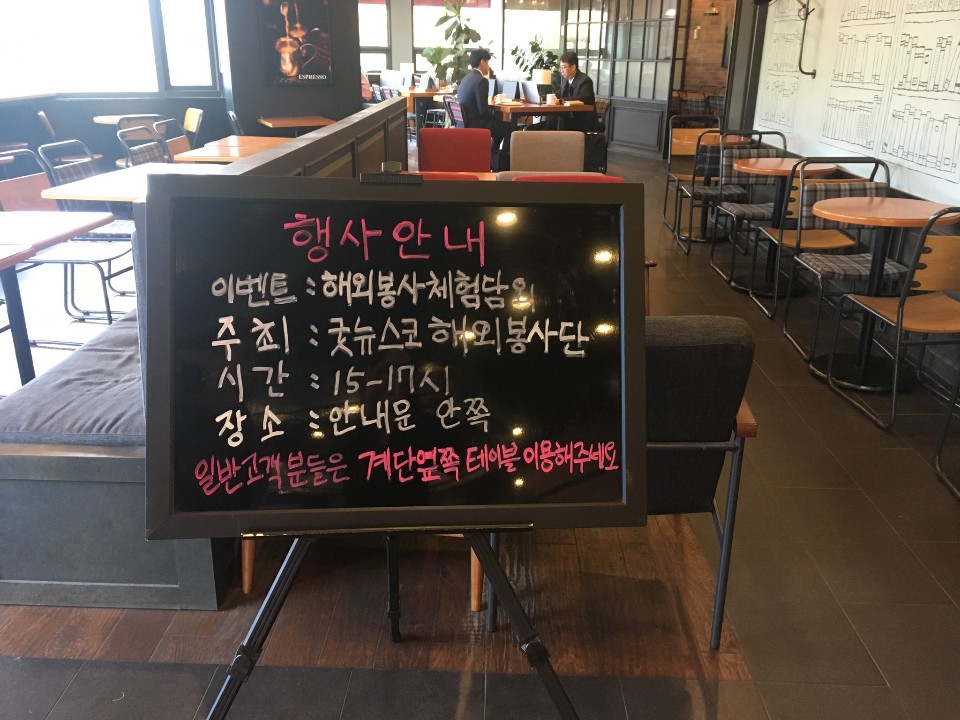 ESPRESSO
행사안내
이벤트 : 해외봉사체험담
주최 : 굿뉴스코 해외봉사단
시간 : 15-17시
장소 : 안내문 안쪽
일반고객분들은 계단옆쪽 테이블 이용해주세요